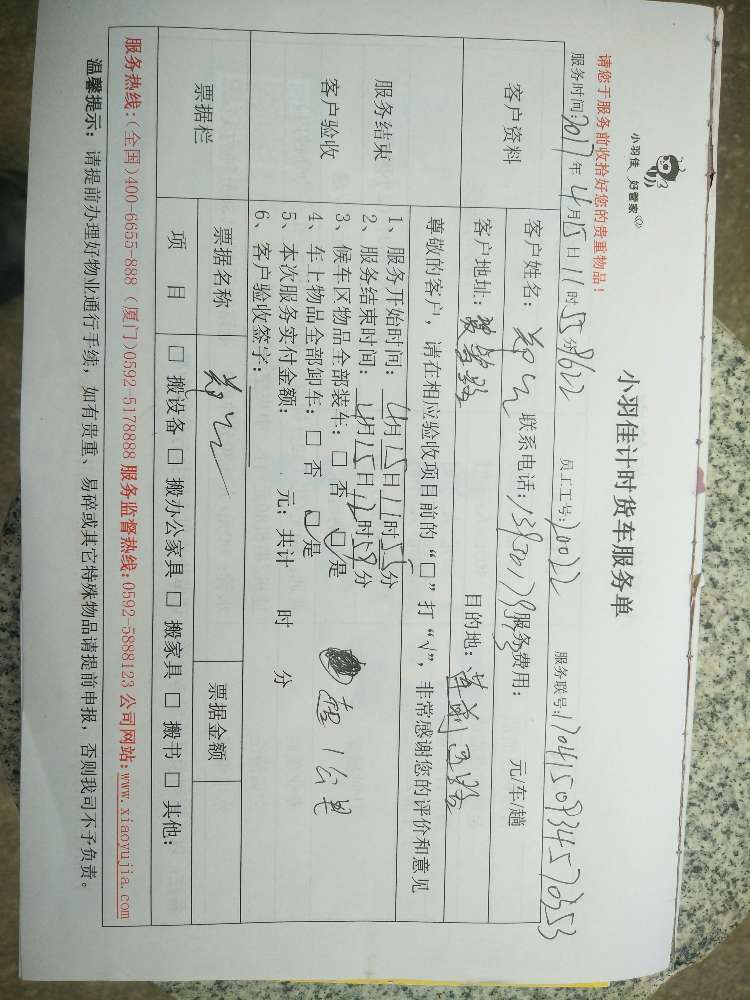 小羽佳 好管家
小羽佳计时货车服务单
请您于服务前收拾好您的贵重物品！
服务时间:2017年4月15日11时55分 8622 员工工号:20022 服务联号:1704150934570353
客户资料
客户姓名： 联系电话: 服务费用： 元/车/趟
客户地址： 目的地：
服务结束
客户验收
尊敬的客户，请在相应验收项目前的“□”打“√”，非常感谢您的评价和意见
1、服务开始时间：4月15日11时55分
2、服务结束时间：4月15日12时58分
3、候车区物品全部装车：□ 否 ☑是
4、车上物品全部卸车：□ 否 ☑是 超1公里
5、本次服务实付金额： 元；共计 时 分
6、客户验收签字：
票据栏 票据名称 票据金额
项 目 □ 搬设备 □ 搬办公家具 □ 搬家具 □ 搬书 □ 其他：
服务热线:(全国)400-6655-888 (厦门)0592-5178888 服务监督热线:0592-5888123 公司网站:www.xiaoyujia.com
温馨提示：请提前办理好物业通行手续，如有贵重、易碎或其它特殊物品请提前申报，否则我司不予负责。